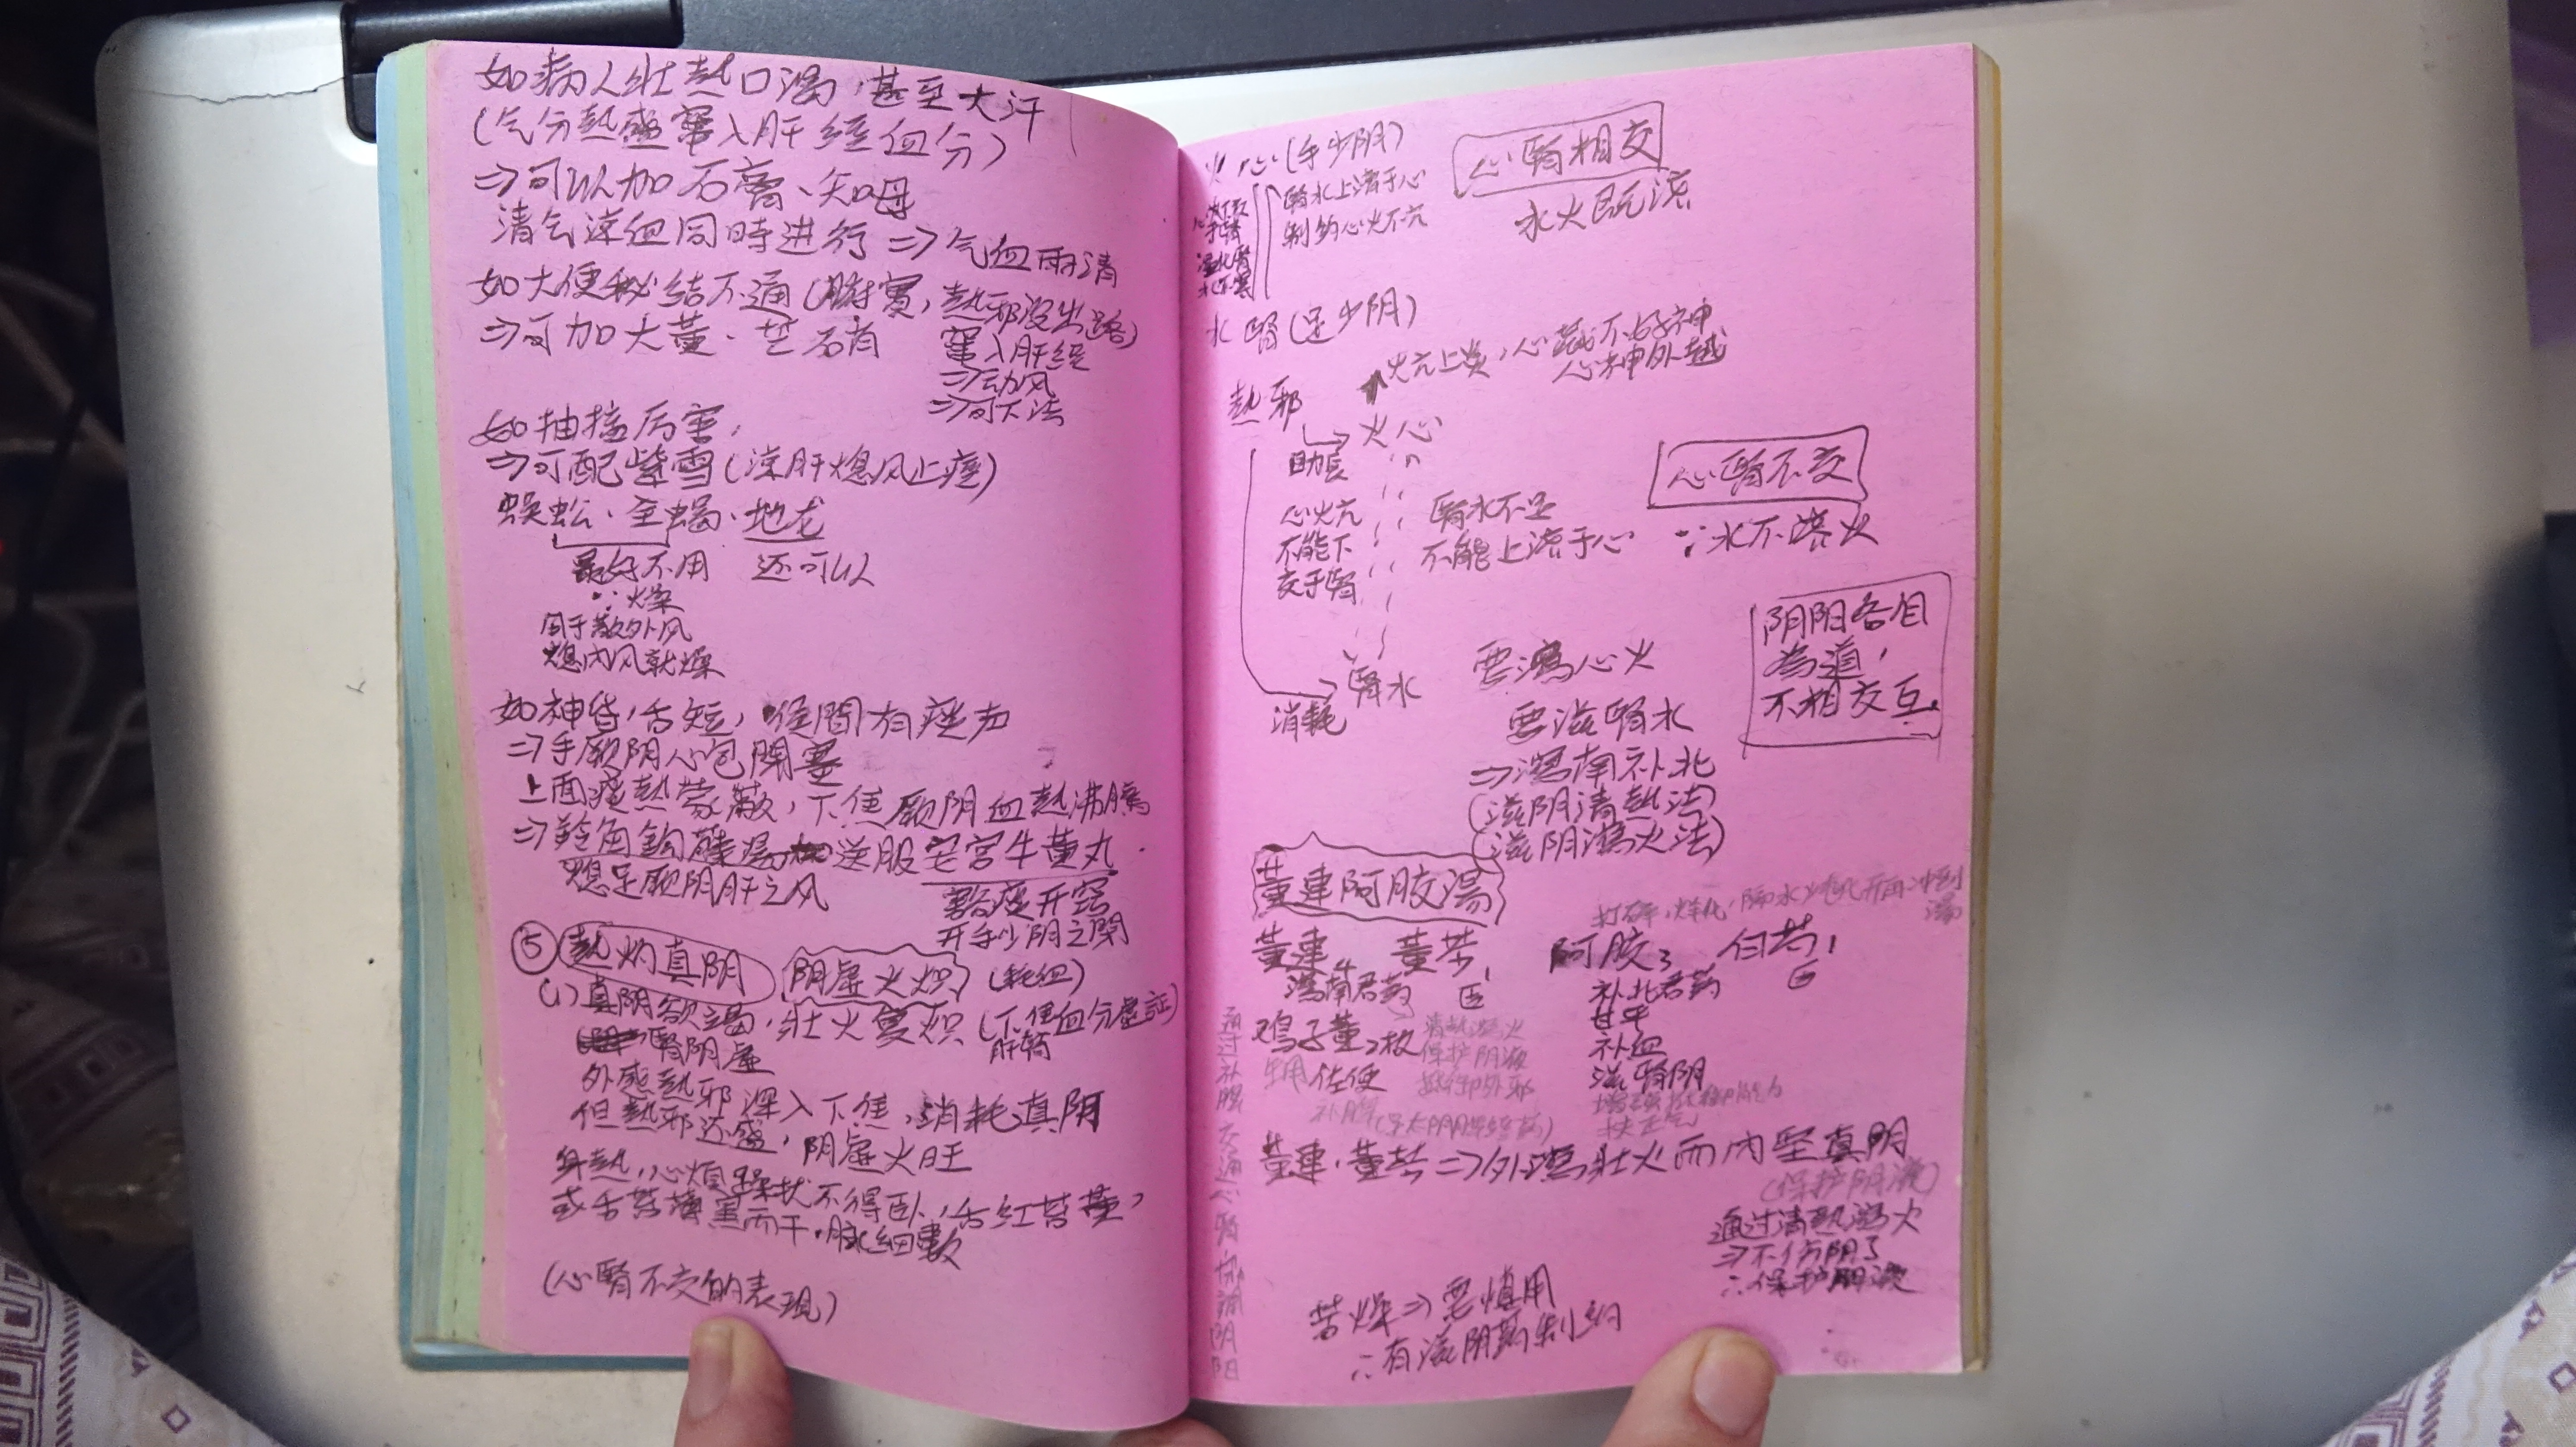 如病人壮热口渴，甚至大汗
(气分热盛窜入肝经血分)
⇒可以加石膏、知母
清气凉血同時进行 ⇒ 气血两清
如大便秘结不通(腑實，热邪没出路)
⇒可加大黄、芒硝
窜入肝经
⇒动风
⇒可下法
如抽搐厉害，
⇒可配紫雪(涼肝熄风止痙)
蜈蚣、全蝎、地龙
最好不用 还可以
∵火燥
用于散外风
熄内风就燥
如神昏，舌短，喉間有痰声
⇒手厥阴心包閉塞
上面痰热蒙蔽，下焦厥阴血热沸騰
⇒羚角鈎藤湯 送服安宫牛黄丸
熄足厥阴肝之风
豁痰开窍
开手少阴之閉
⑤ 热灼真阴 阴虚火炽 (耗血)
(1) 真阴欲竭，壮火复炽 (下焦血分虚証)
腎阴虚 肝腎
外感热邪深入下焦，消耗真阴
但热邪还盛，阴虚火旺
身热，心烦躁扰不得卧，舌红苔黄，
或舌苔薄黑而干，脉细數
(心腎不交的表现)
火 心(手少阴)
心腎相交
腎水上济于心
制约心火不亢
水火既济
水 腎(足少阴)
火亢上炎，心藏不好神
心神外越
热邪
→ 火心
助長
心腎不交
心火亢
不能下
交于腎
腎水不足
不能上济于心
∵水不济火
阴阳各自
为道，
不相交互.
→ 腎水
消耗
要瀉心火
要滋腎水
⇒瀉南补北
(滋阴清热法)
(滋阴瀉火法)
黄連阿胶湯
黄連4 黄芩1 阿胶3 白芍1
瀉南君药 臣
补北君药 臣
甘平
补血
滋腎阴
鸡子黄2枚
生用 佐使
清热瀉火
保护阴液
黄連、黄芩⇒外瀉壮火而内坚真阴
(保护阴液)
通过清热瀉火
⇒不伤阴了
∴保护阴液
苦燥⇒要慎用
∴有滋阴药制约